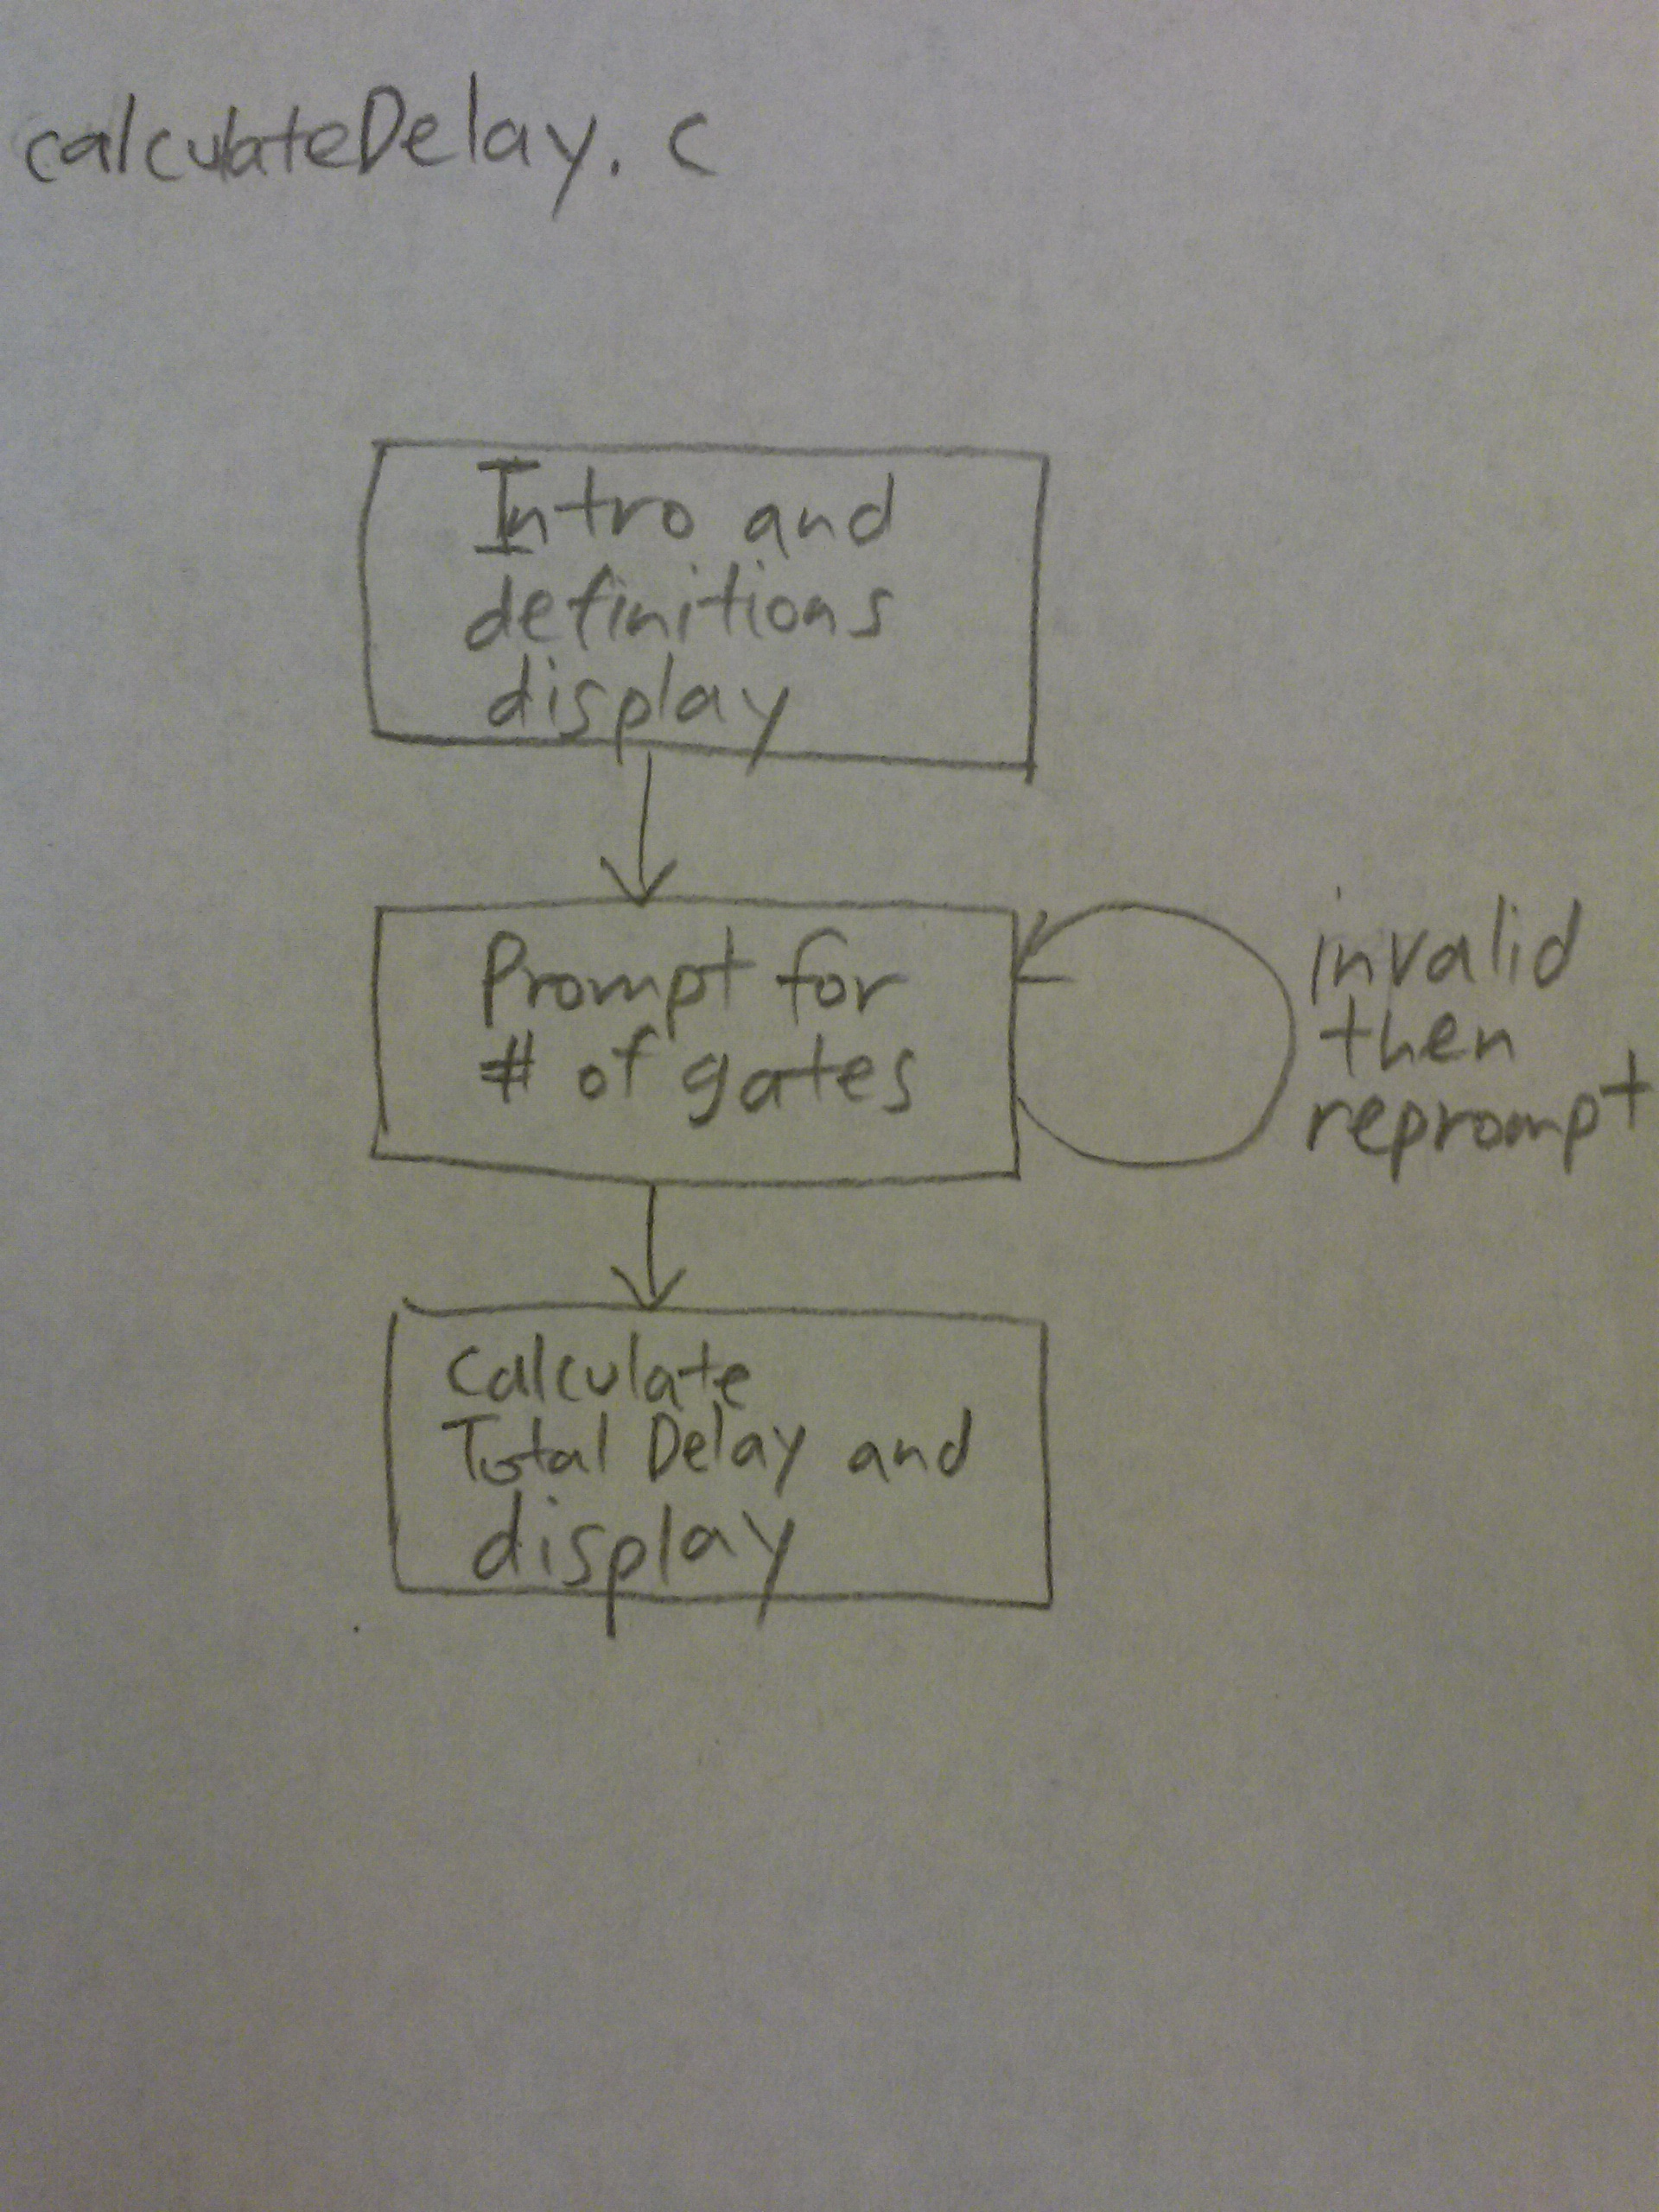 calculateDelay.c
Intro and
definitions
display
Prompt for
# of gates
invalid
then
reprompt
Calculate
Total Delay and
display